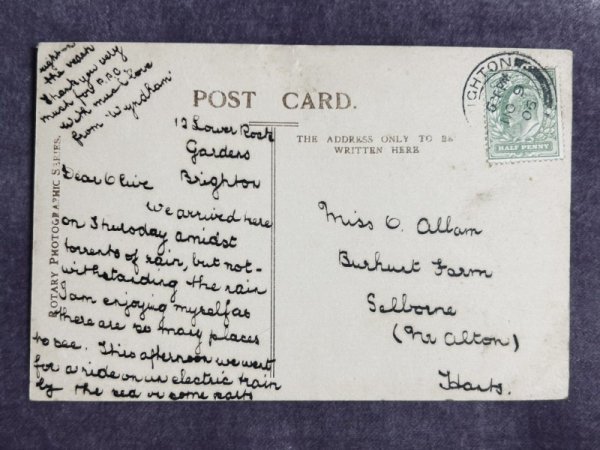 POST CARD.
THE ADDRESS ONLY TO BE
WRITTEN HERE
ROTARY PHOTOGRAPHIC SERIES.
12 Lower Rock
Gardens
Brighton
Dear Olive
We arrived here
on Thursday amidst
torrents of rain, but not-
withstanding the rain
I am enjoying myself as
there are so many places
to see. This afternoon we went
for a ride on an electric train
by the sea in some parts
right in
the wash
Thank you very
much for P.P.C.
With much love
from "Wyndham"
Miss O. Allam
Burhunt Farm
Selborne
(Nr Alton)
Hants.
IGHTON
NO 9
05
HALF PENNY